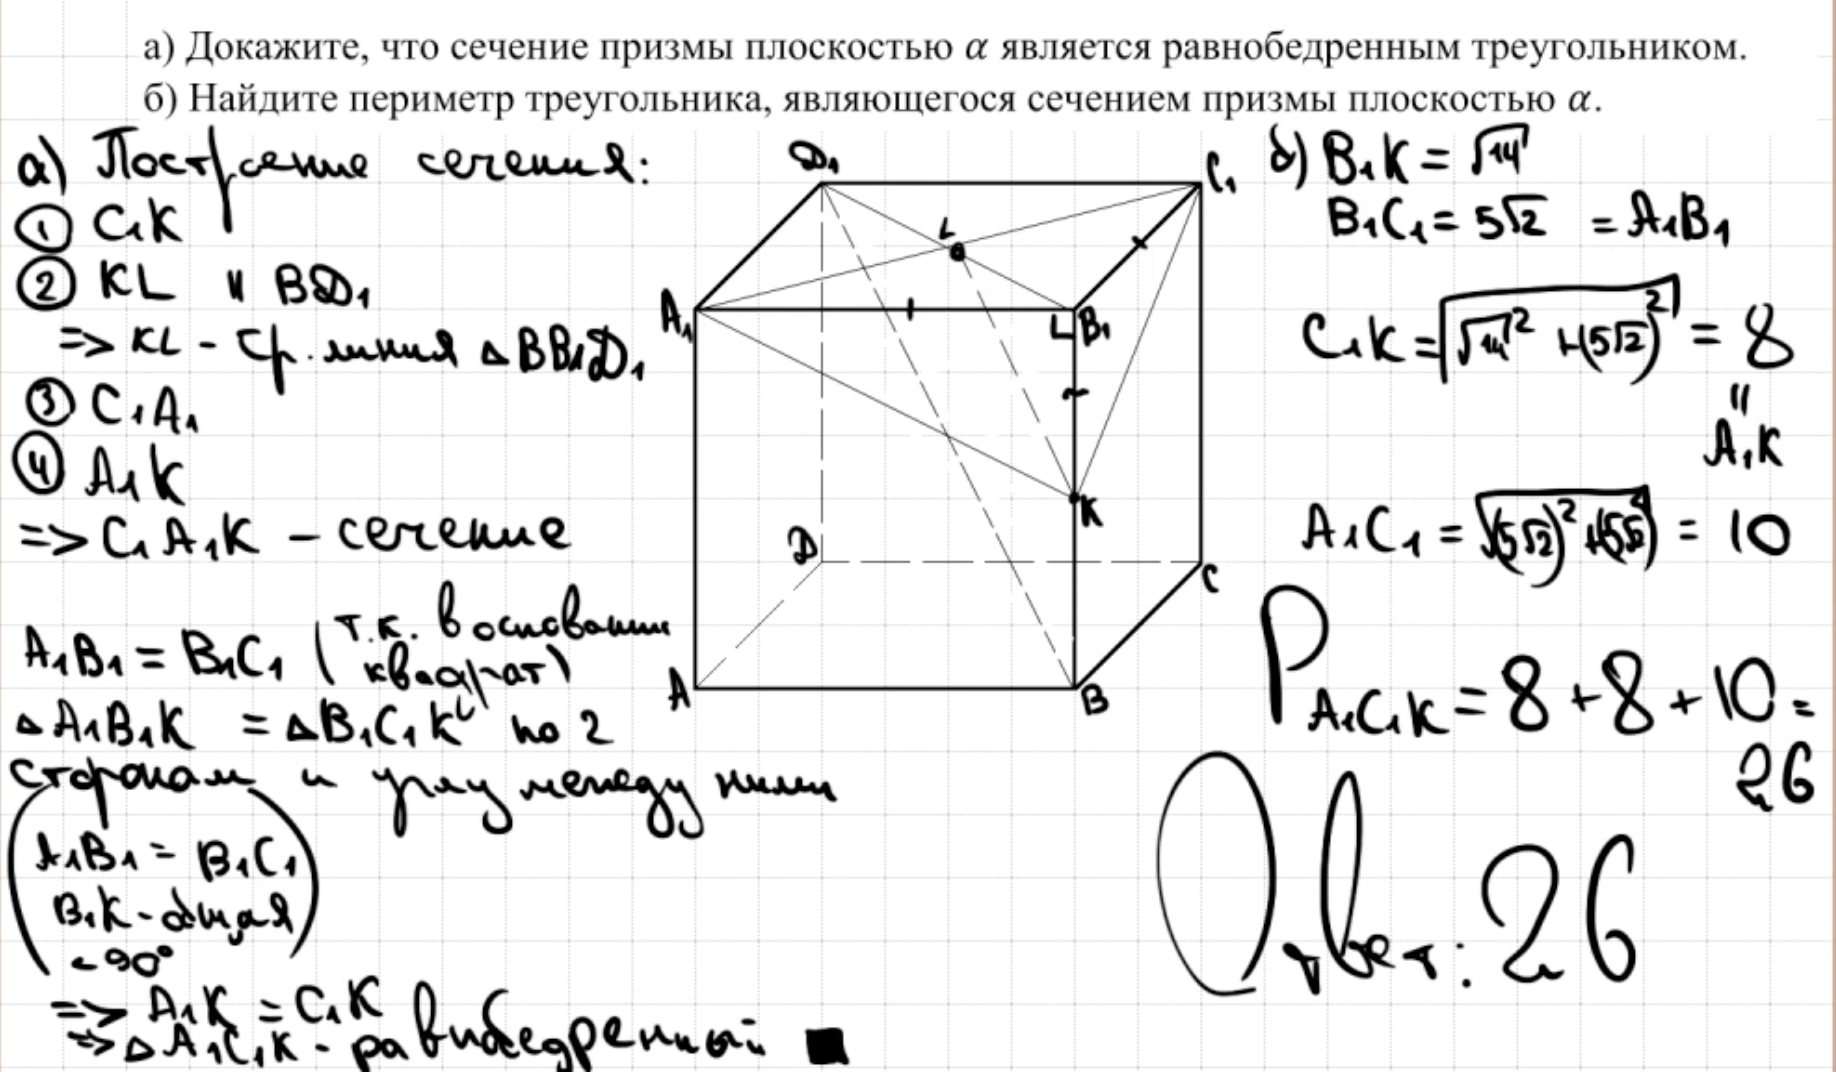 а) Докажите, что сечение призмы плоскостью α является равнобедренным треугольником.
б) Найдите периметр треугольника, являющегося сечением призмы плоскостью α.
а) Построение сечения:
① C₁K
② KL || BD₁
=> KL - ср. линия △BB₁D₁
③ C₁A₁
④ A₁K
=> C₁A₁K - сечение
A₁B₁ = B₁C₁ (т.к. в основании
квадрат)
△A₁B₁K = △B₁C₁K по 2
сторонам и углу между ними
(A₁B₁ = B₁C₁
B₁K - общая
∠90°)
=> A₁K = C₁K
=> △A₁C₁K - равнобедренный ■
D₁
C₁
L
A₁
B₁
K
D
C
A
B
б) B₁K = √14
B₁C₁ = 5√2 = A₁B₁
C₁K = √(√14² + (5√2)²) = 8
||
A₁K
A₁C₁ = √((5√2)² + (5√2)²) = 10
P A₁C₁K = 8 + 8 + 10 =
26
Ответ: 26